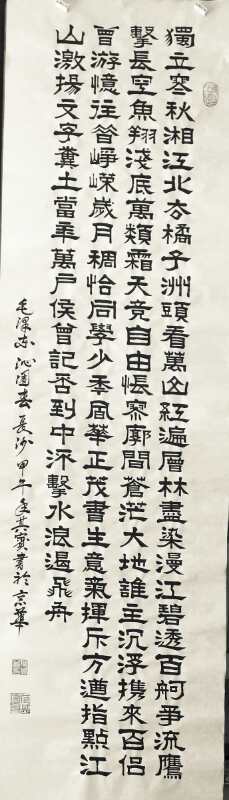 獨立寒秋湘江北去橘子洲頭看萬山紅遍層林盡染漫江碧透百舸爭流鷹
擊長空魚翔淺底萬類霜天競自由悵寥廓問蒼茫大地誰主沉浮攜來百侶
曾游憶往昔崢嶸歲月稠恰同學少年風華正茂書生意氣揮斥方遒指點江
山激揚文字糞土當年萬戶侯曾記否到中流擊水浪遏飛舟
毛澤東沁園春長沙甲午年其寶書於京華